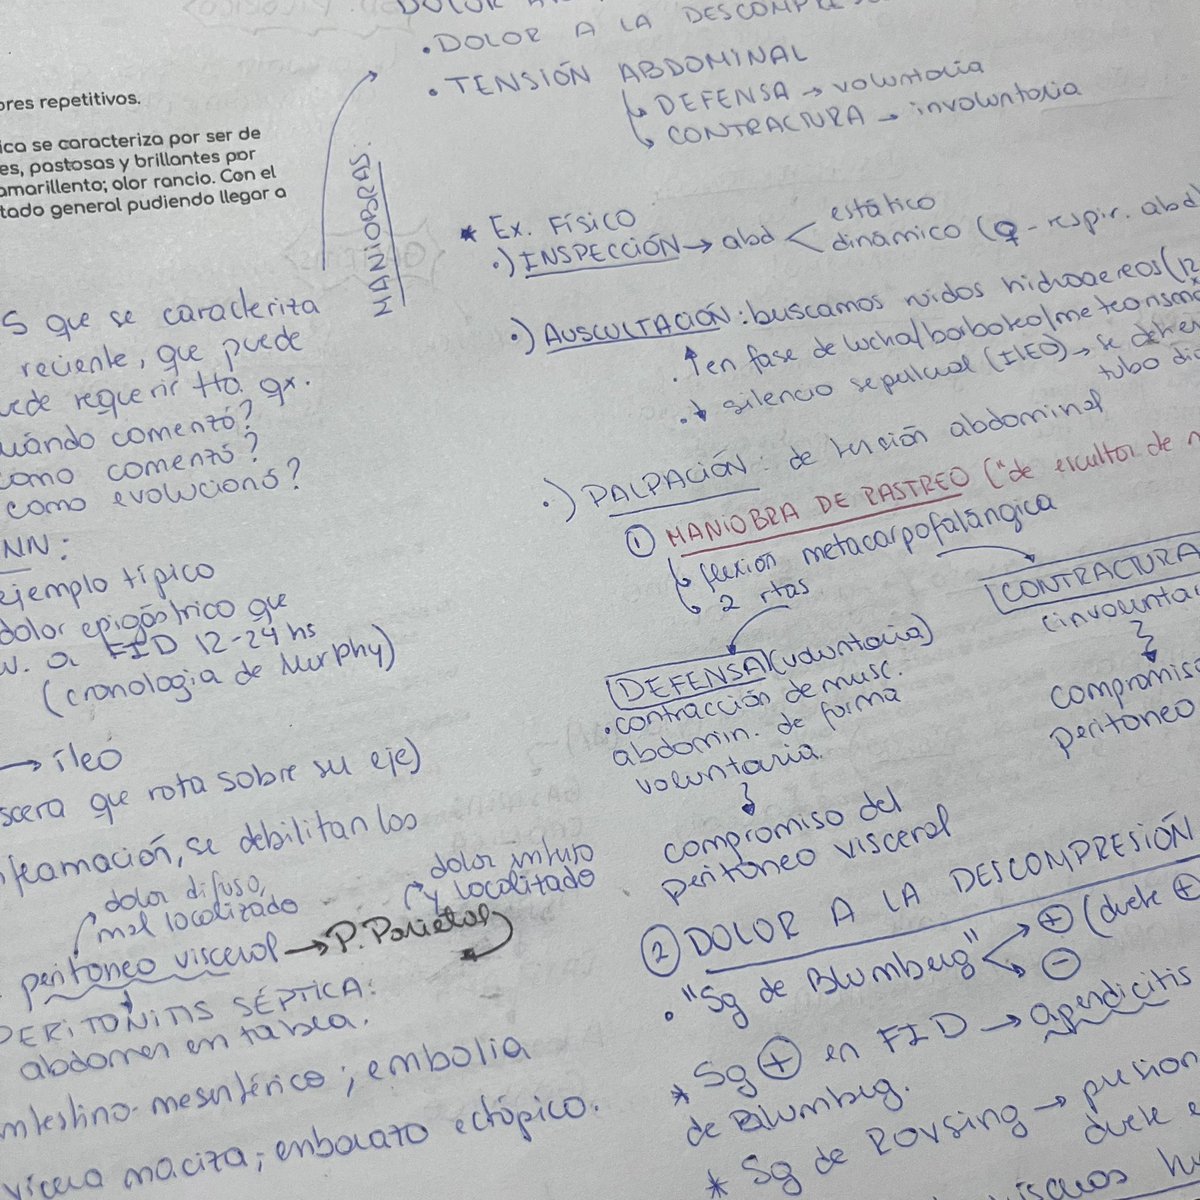 ores repetitivos.
ica se caracteriza por ser de
es, pastosas y brillantes por
amarillento; olor rancio. Con el
tado general pudiendo llegar a
s que se caracteriza
reciente, que puede
uede requerir tto. qx.
uándo comenzó?
como comenzó?
como evolucionó?
NN:
ejemplo típico
dolor epigástrico que
v. a FID 12-24 hs
(cronologia de Murphy)
→ íleo
scera que rota sobre su eje)
flamación, se debilitan los
dolor difuso,
mal localizado
dolor intuso
y localizado
peritoneo visceral → P. Parietal
PERITONITIS SÉPTICA:
abdomen en tabla.
intestino-mesentérico; embolia
víscera maciza; embarazo ectópico.
MANIOBRAS:
• DOLOR A LA DESCOMPRES
• TENSIÓN ABDOMINAL
↳ DEFENSA → voluntaria
↳ CONTRACTURA → involuntaria
* Ex. Físico
•) INSPECCIÓN → abd < estático
dinámico (♀ - respir. abd
•) AUSCULTACIÓN: buscamos ruidos hidroaereos (12
• ↑ en fase de lucha/borboteo/meteorismo
• ↓ silencio sepulcral (ILEO) → se detien
tubo di
•) PALPACIÓN: de tensión abdominal
① MANIOBRA DE RASTREO ("de escultor de m
↳ flexión metacarpofalángica
↳ 2 rtas
DEFENSA (voluntaria)
• contracción de musc.
abdomin. de forma
voluntaria.
compromiso del
peritoneo visceral
CONTRACTURA
(involuntar
compromis
peritoneo
② DOLOR A LA DESCOMPRESIÓN
• "Sg de Blumberg" < ⊕ (duele ⊕
⊖
* Sg ⊕ en FID → apendicitis
de Blumberg.
* Sg de Rovsing → presion
duele e